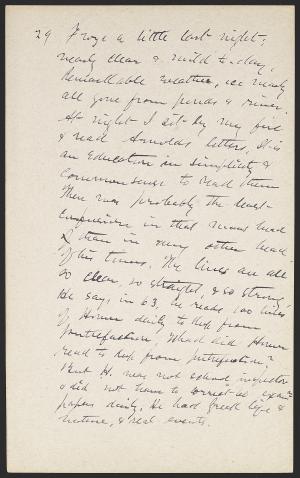 29 Froze a little last night;
nearly clear & mild to-day,
Remarkable weather, ice nearly
all gone from ponds & river.
At night I sit by my fire
& read Arnolds letters. It is
an education in simplicity &
common sense to read them
There was probably the least
in that mans head
than in any other head
of his times. The lines are all
so clear, so straight, & so strong.
He says, in 63, he reads, 100 lines
of Homer daily to keep from
putrefaction. What did Homer
read to keep from putrefaction?
But H. was not school inspector
& did not have to correct ex
papers daily. He had fresh life &
nature, & real events.